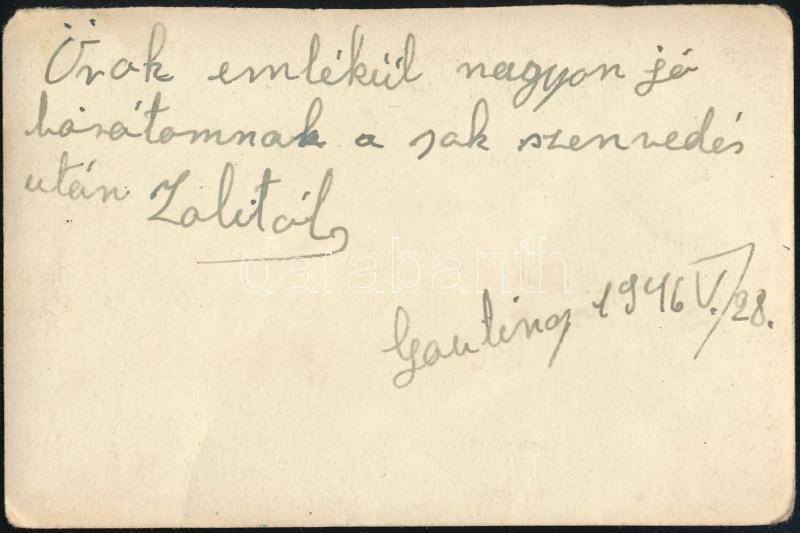 Örok emlékül nagyon jó
barátomnak a sok szenvedés
után Zolitól
databanth
Gauting 1946 V./28.